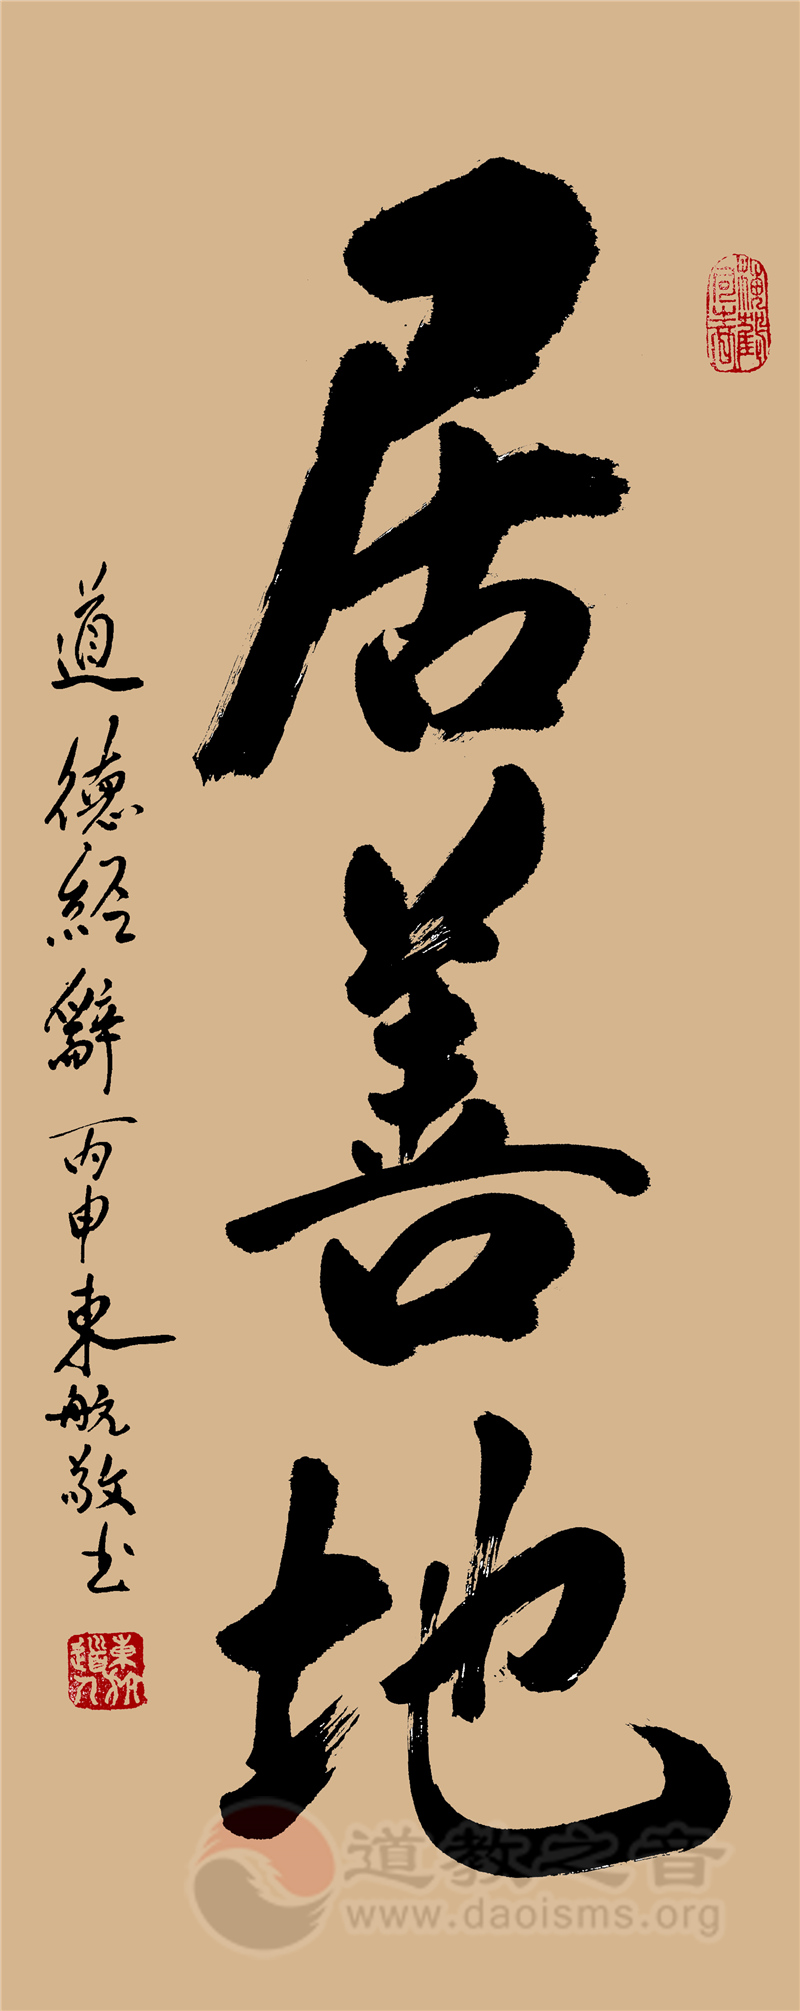 居善地
道德经辞丙申東航敬书
道教之音
www.daoisms.org